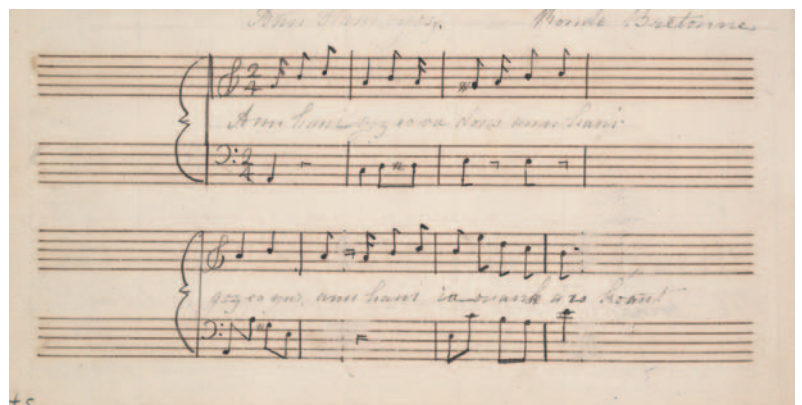 Ann hani goz Ronde Bretonne
2
4
Ann hani goz eo va dous ann hani
2
4
goz eo sur, ann hani iaouank a zo koant